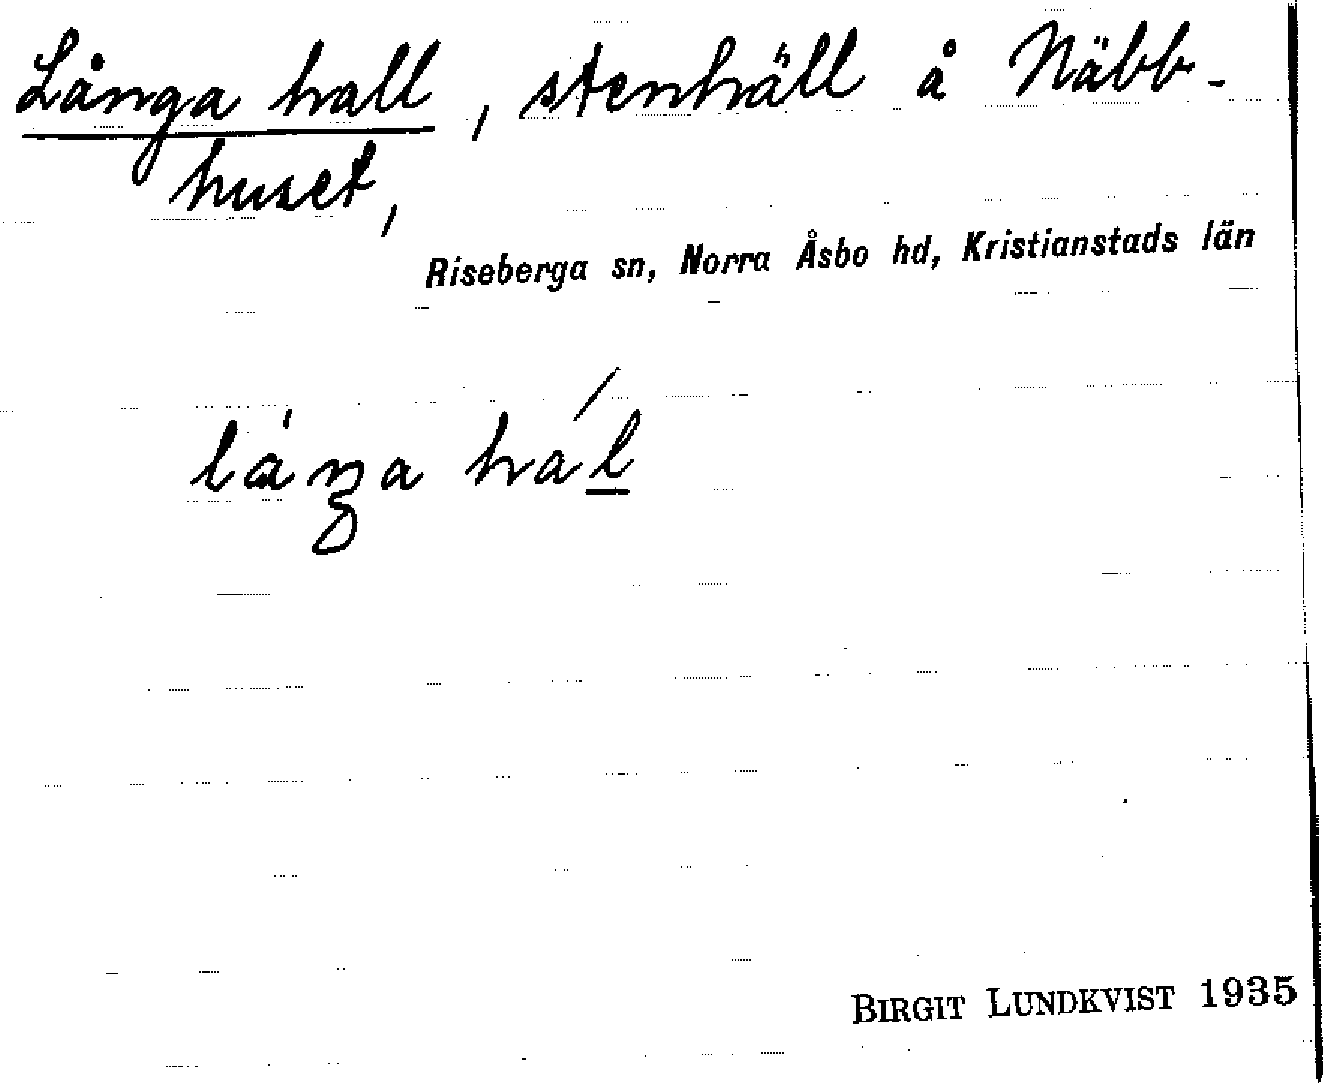 Långa hall, stenhäll å Näbb-
huset,
Riseberga sn, Norra Åsbo hd, Kristianstads län
láŋa hál
BIRGIT LUNDKVIST 1935